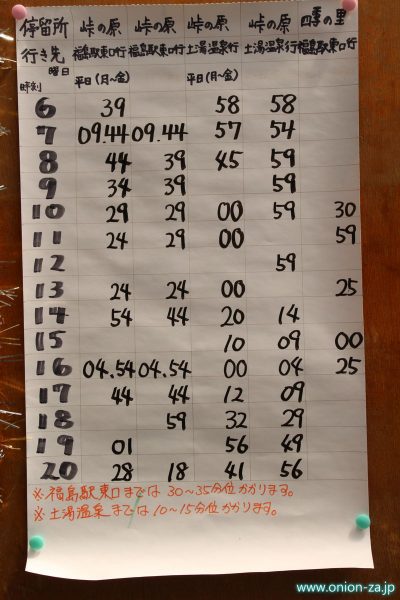 停留所 峠の原 峠の原 峠の原 峠の原 四季の里
行き先 福島駅東口行 福島駅東口行 土湯温泉行 土湯温泉行 福島駅東口行
曜日 平日(月〜金) 平日(月〜金)
時刻
6 39 58 58
7 09.44 09.44 57 54
8 44 39 45 59
9 34 39 59
10 29 29 00 59 30
11 24 29 00 59
12 59
13 24 24 00 25
14 54 44 20 14
15 10 09 00
16 04.54 04.54 00 04 25
17 44 44 12 09
18 59 32 29
19 01 56 49
20 28 18 41 56
※福島駅東口までは 30〜35分位かかります。
※土湯温泉までは 10〜15分位かかります。
www.onion-za.jp